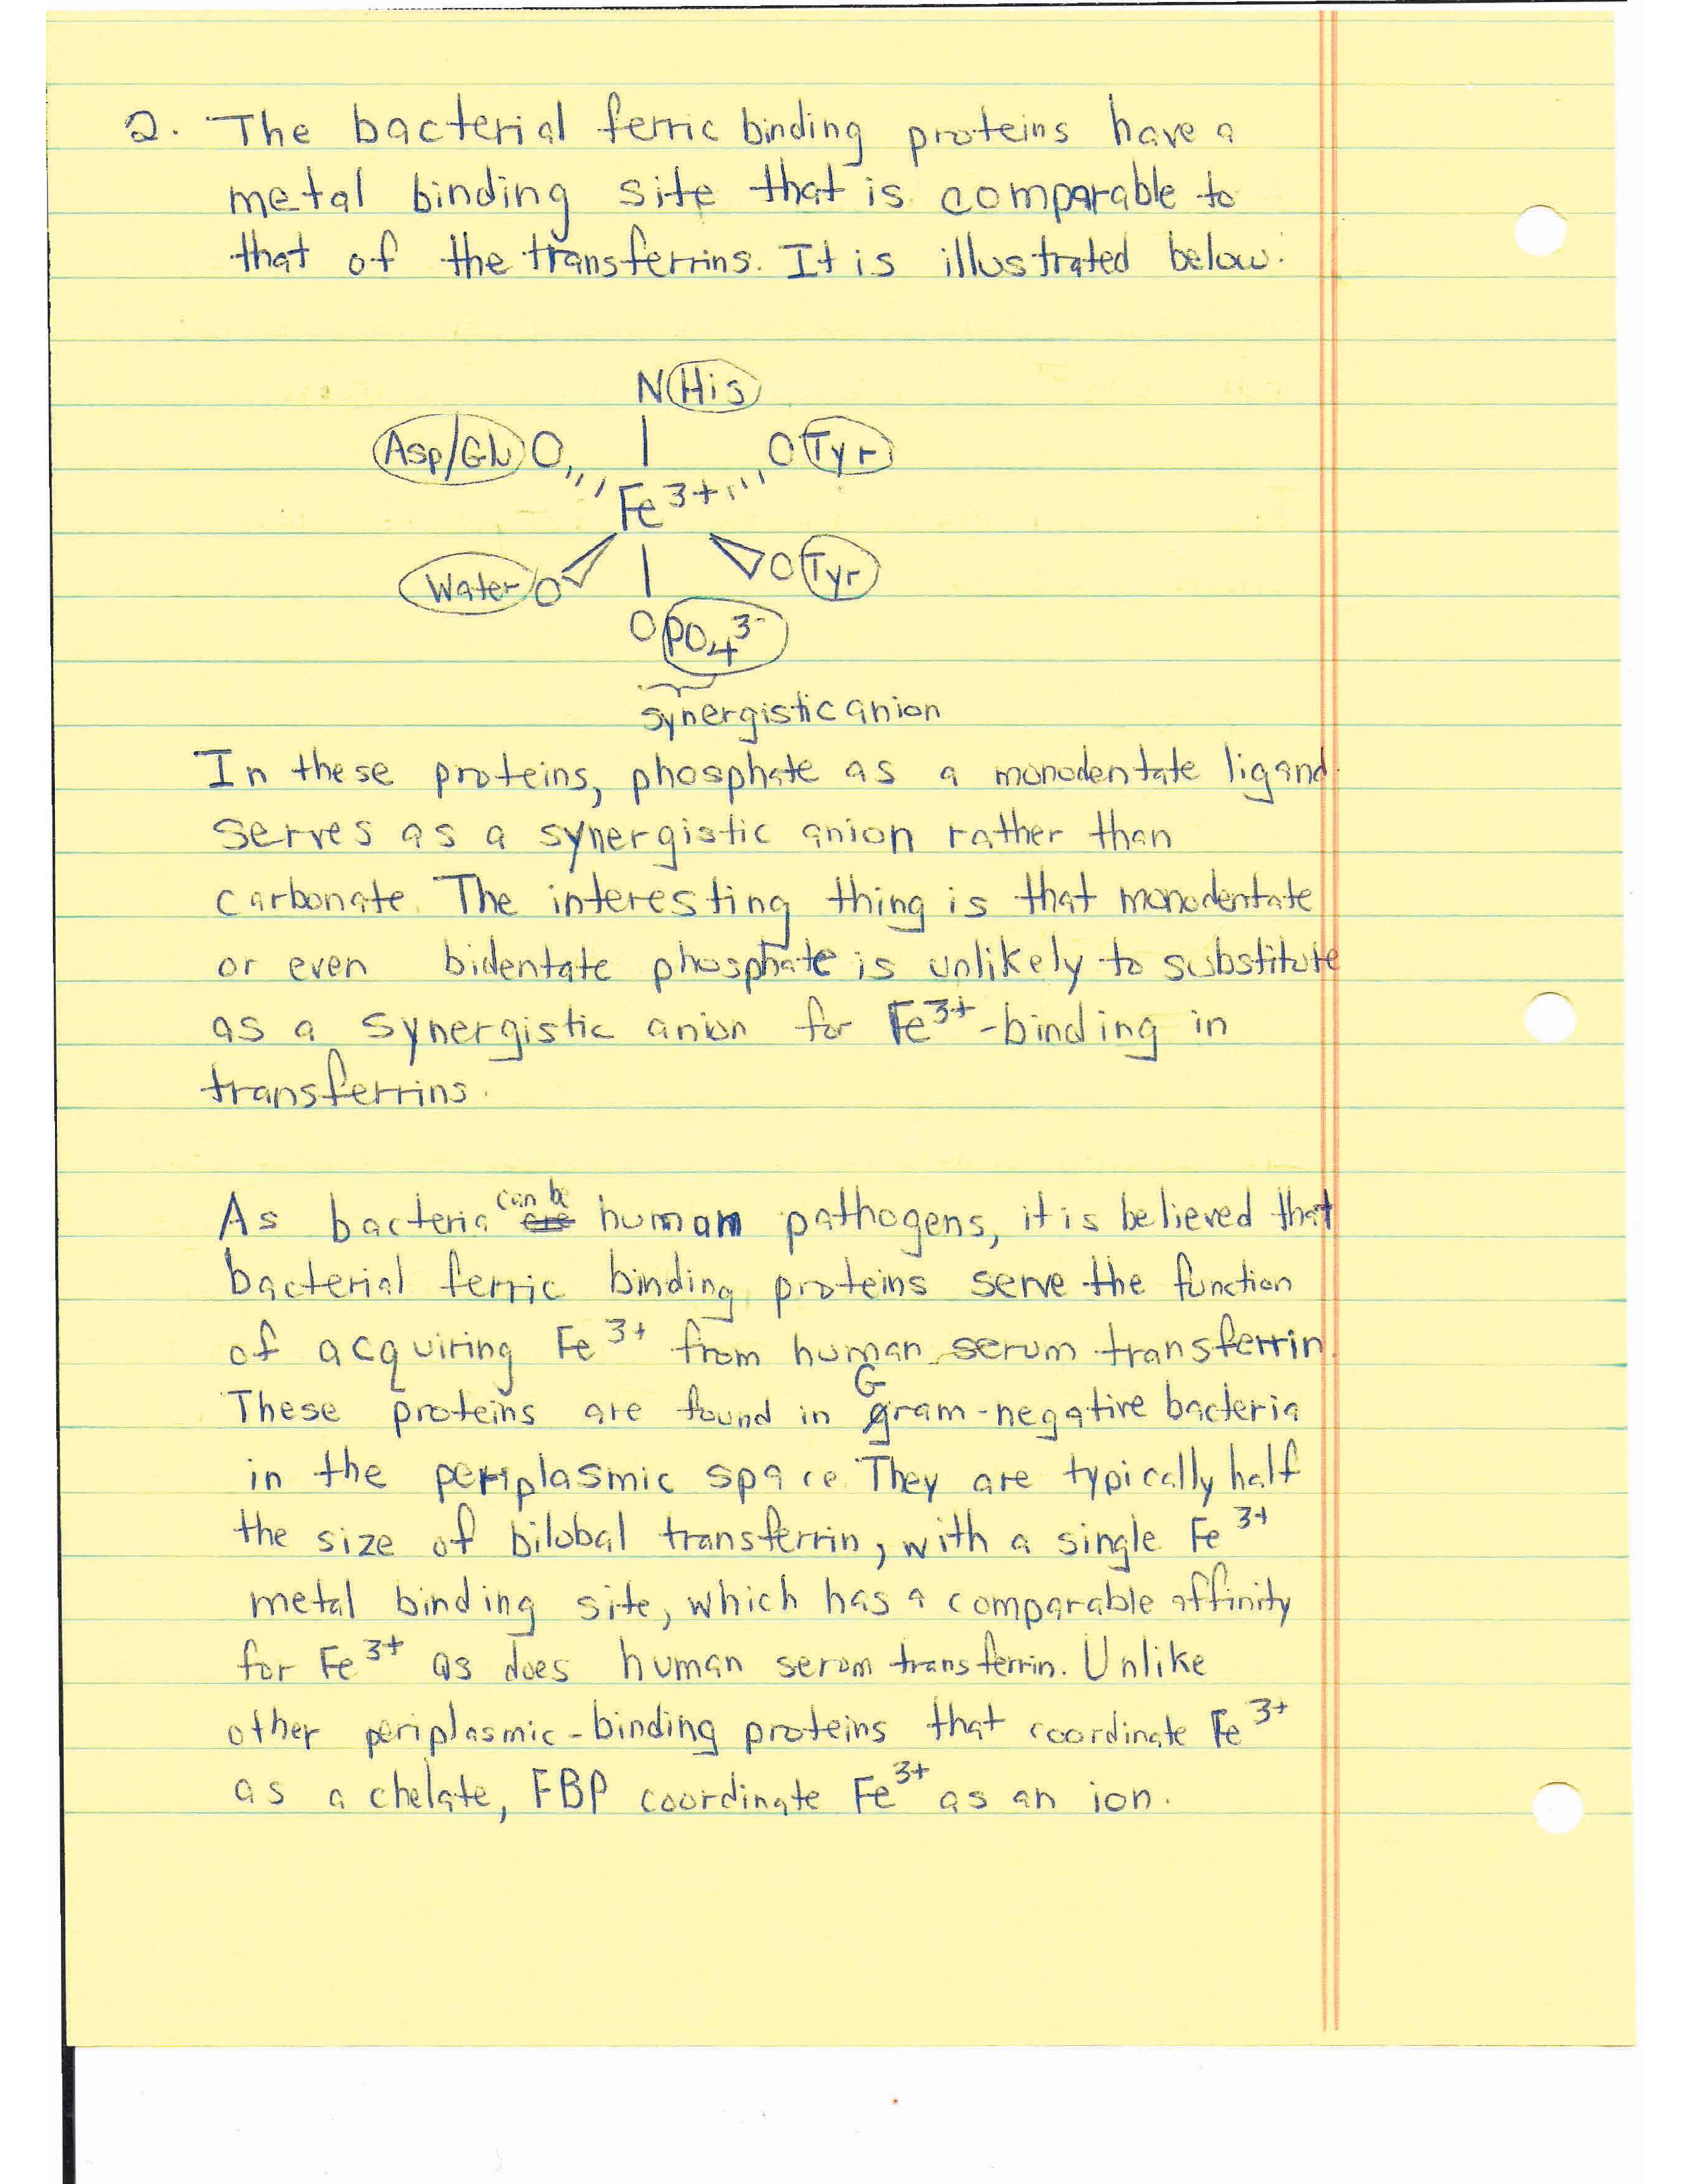 2. The bacterial ferric binding proteins have a
metal binding site that is comparable to
that of the transferrins. It is illustrated below.
N His
Asp/Glu O O Tyr
Fe3+
Water O O Tyr
O PO4 3-
synergistic anion
In these proteins, phosphate as a monodentate ligand
serves as a synergistic anion rather than
carbonate. The interesting thing is that monodentate
or even bidentate phosphate is unlikely to substitute
as a synergistic anion for Fe3+-binding in
transferrins.
As bacteria can be are human pathogens, it is believed that
bacterial ferric binding proteins serve the function
of acquiring Fe3+ from human serum transferrin.
These proteins are found in Gram-negative bacteria
in the periplasmic space. They are typically half
the size of bilobal transferrin, with a single Fe3+
metal binding site, which has a comparable affinity
for Fe3+ as does human serum transferrin. Unlike
other periplasmic-binding proteins that coordinate Fe3+
as a chelate, FBP coordinate Fe3+ as an ion.